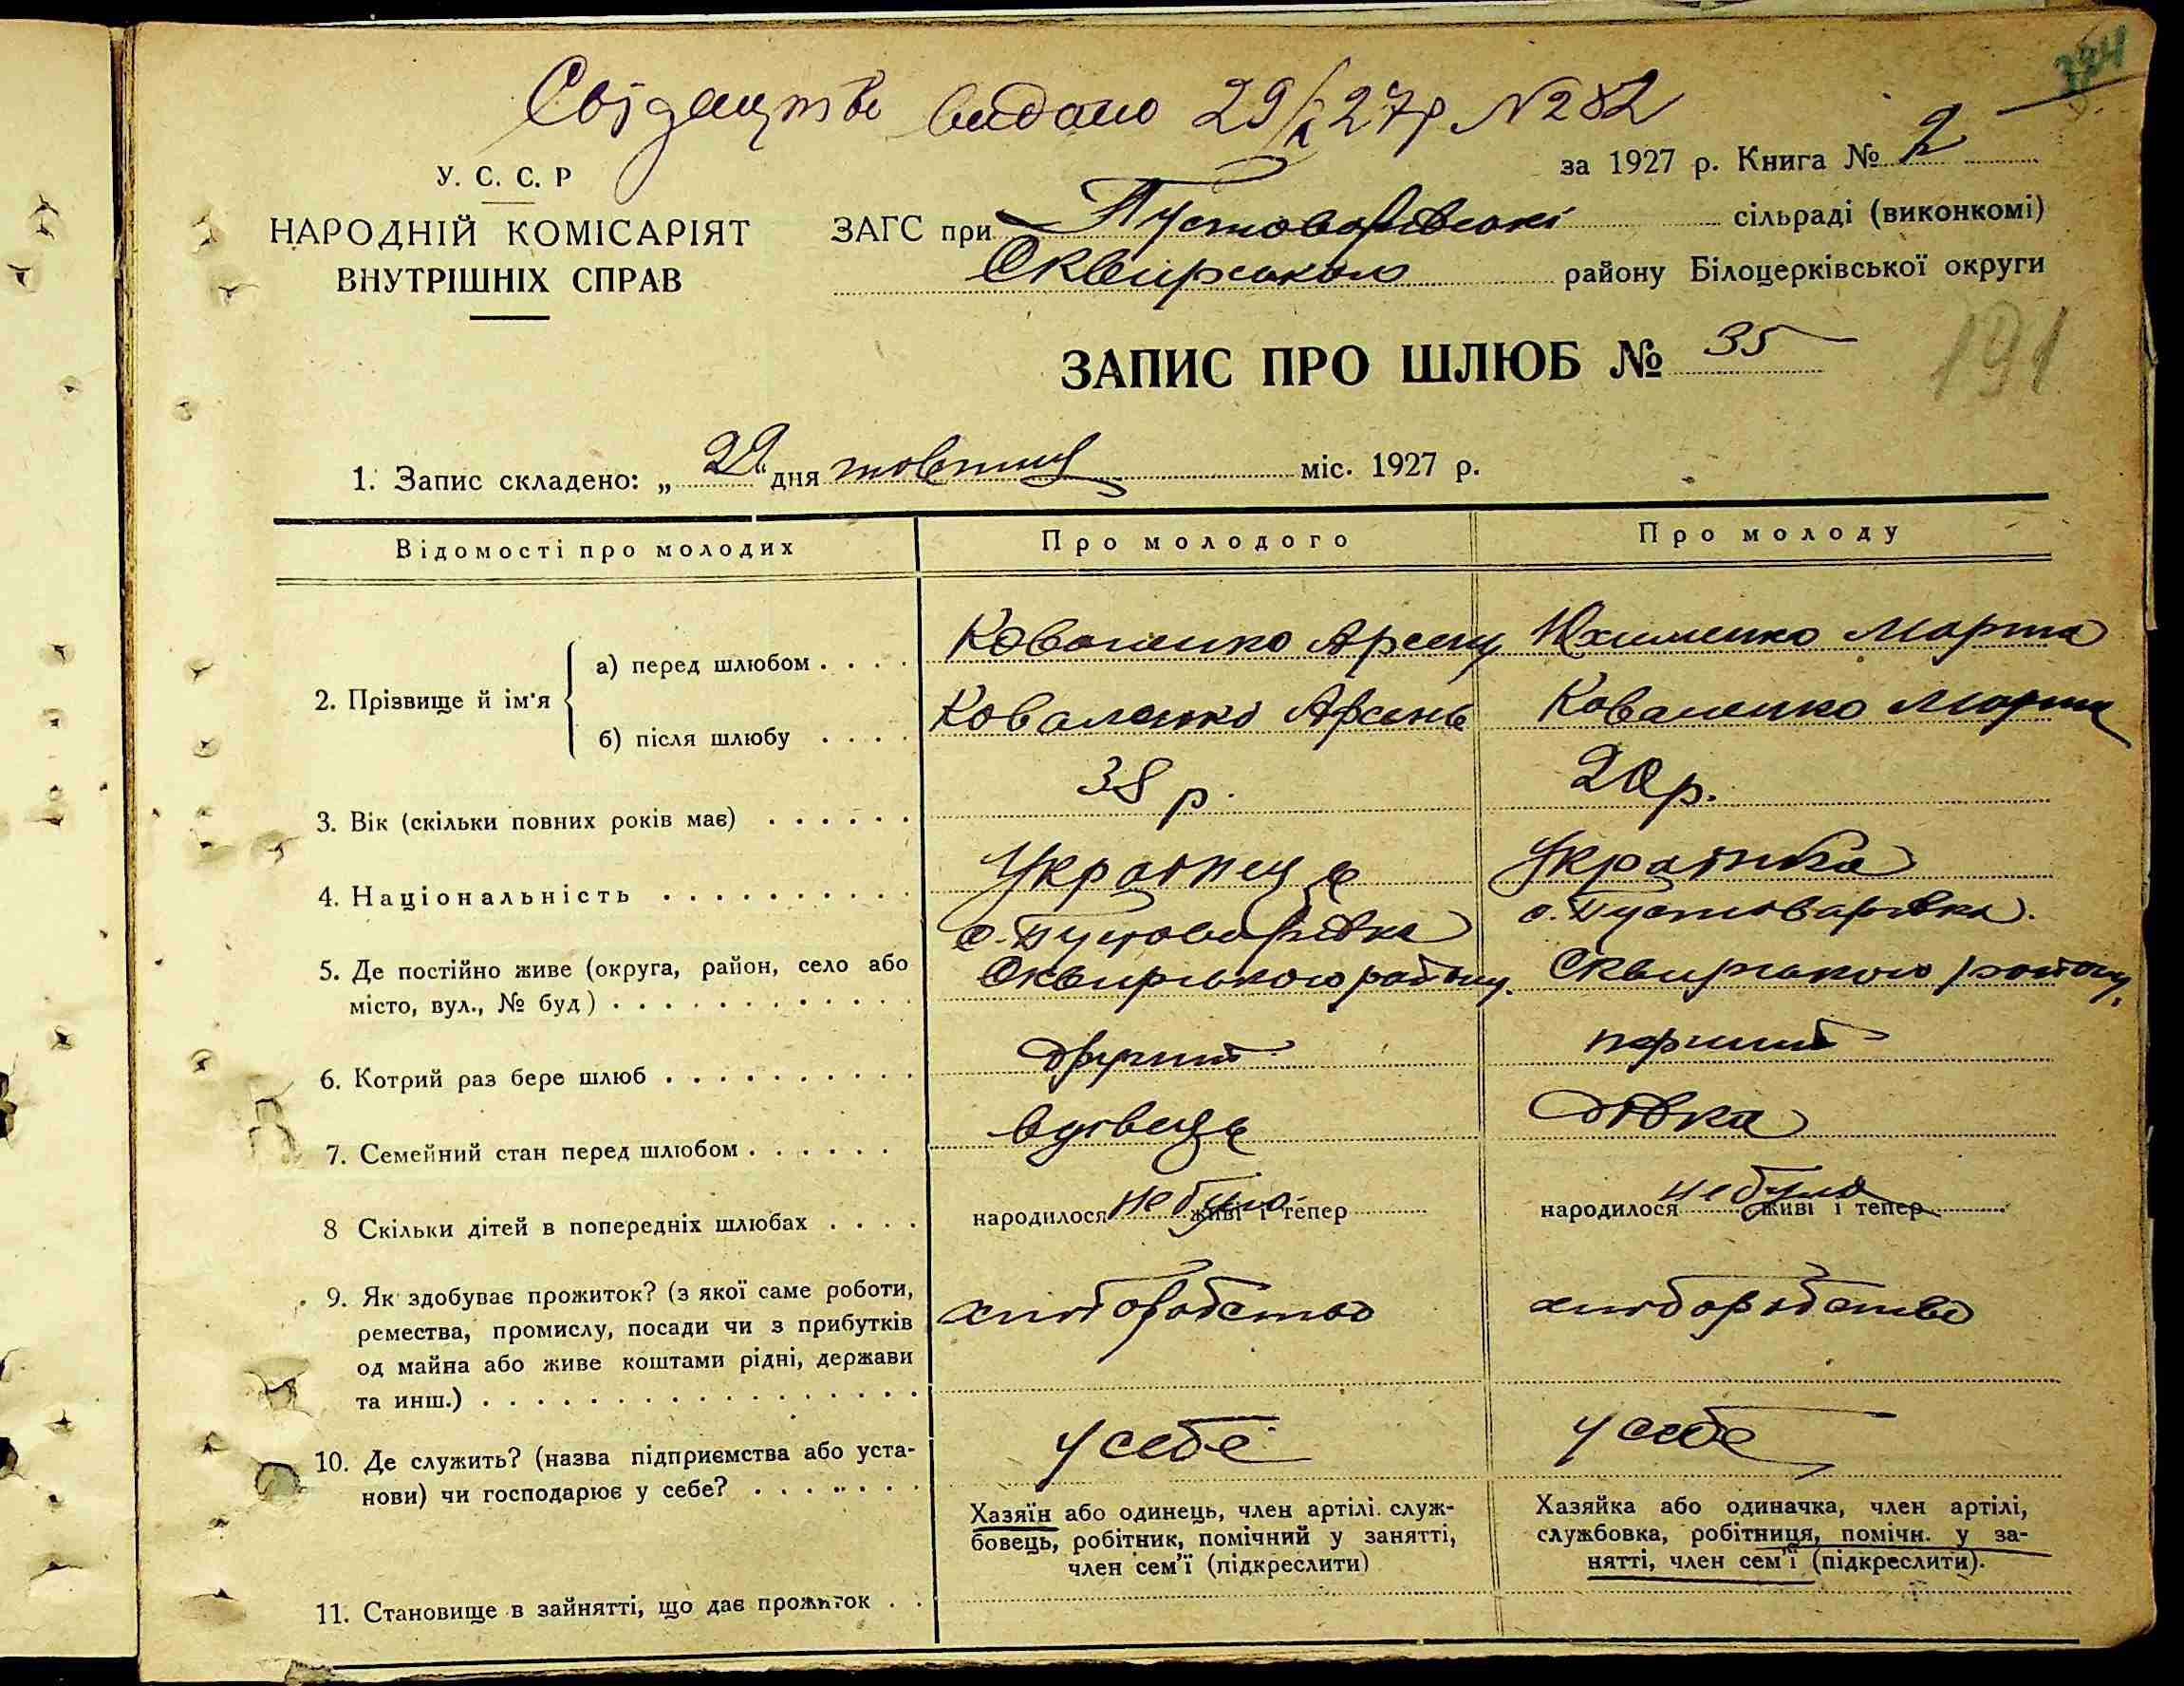 Свідоцтво видано 29/X 27р №282
324
за 1927 р. Книга № 2
У. С. С. Р
НАРОДНІЙ КОМІСАРІЯТ
ВНУТРІШНІХ СПРАВ
ЗАГС при Пустоварівські сільраді (виконкомі)
Сквирського району Білоцерківської округи
ЗАПИС ПРО ШЛЮБ № 35
191
1. Запис складено: „ 29 " дня жовтня міс. 1927 р.
Відомості про молодих Про молодого Про молоду
2. Прізвище й ім'я
а) перед шлюбом . . . . Коваленко Арсень Юхименко Марта
б) після шлюбу . . . . Коваленко Арсень Коваленко Марта
3. Вік (скільки повних років має) . . . . . . 38 р. 20 р.
4. Національність . . . . . . . . . . Українець Українка
5. Де постійно живе (округа, район, село або с. Пустоварівка с. Пустоварівка.
місто, вул., № буд) . . . . . . . . . . . . Сквирського району. Сквирського району.
6. Котрий раз бере шлюб . . . . . . . . . . другий перший
7. Семейний стан перед шлюбом . . . . . . вдівець дівка
8 Скільки дітей в попередніх шлюбах . . . . народилося не було живі і тепер народилося не було живі і тепер
9. Як здобуває прожиток? (з якої саме роботи, хліборобство хліборобство
ремества, промислу, посади чи з прибутків
од майна або живе коштами рідні, держави
та инш.) . . . . . . . . . . . . . . . . .
10. Де служить? (назва підприємства або уста- у себе у себе
нови) чи господарює у себе? . . . . . . .
Хазяїн або одинець, член артілі. служ-
бовець, робітник, помічний у занятті,
член сем'ї (підкреслити)
Хазяйка або одиначка, член артілі,
службовка, робітниця, помічн. у за-
нятті, член сем'ї (підкреслити).
11. Становище в зайнятті, що дає прожиток . .